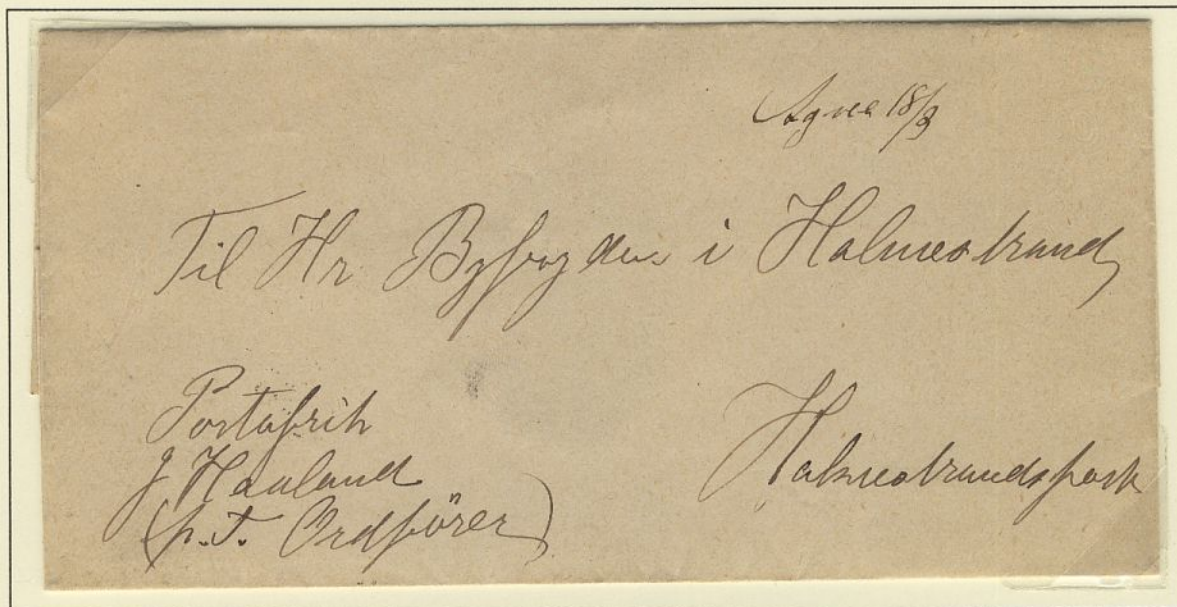 Agnes 18/9
Til Hr Byfogden i Holmestrand
Portofrit
J Haaland
(p.t. Ordförer)
Holmestrandspost